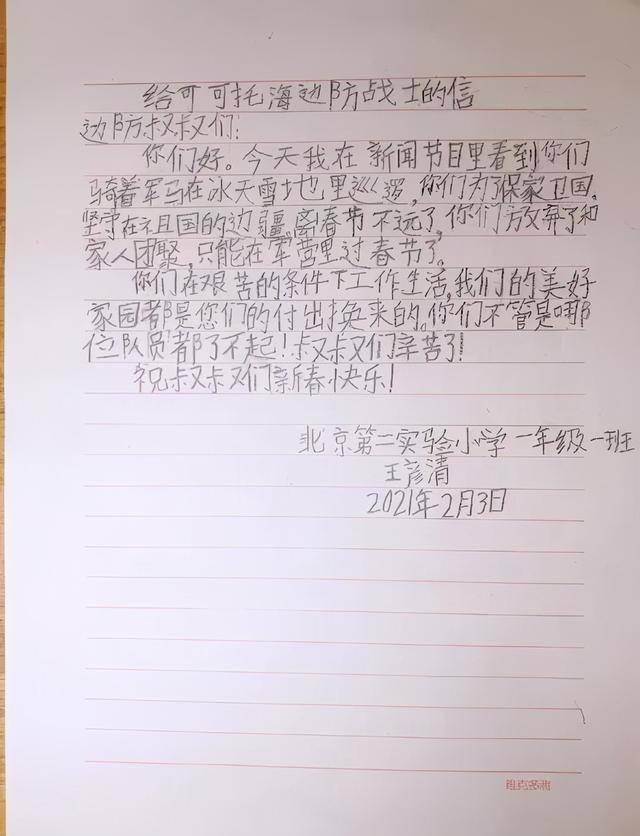 给可可托海边防战士的信
边防叔叔们:
你们好。今天我在新闻节目里看到你们
骑着军马在冰天雪地里巡逻,你们为了保家卫国,
坚守在祖国的边疆。离春节不远了,你们放弃了和
家人团聚,只能在军营里过春节了。
你们在艰苦的条件下工作生活,我们的美好
家园都是您们的付出换来的。你们不管是哪
位队员都了不起!叔叔们辛苦了!
祝叔叔们新春快乐!
北京第二实验小学一年级一班
王彦清
2021年2月3日